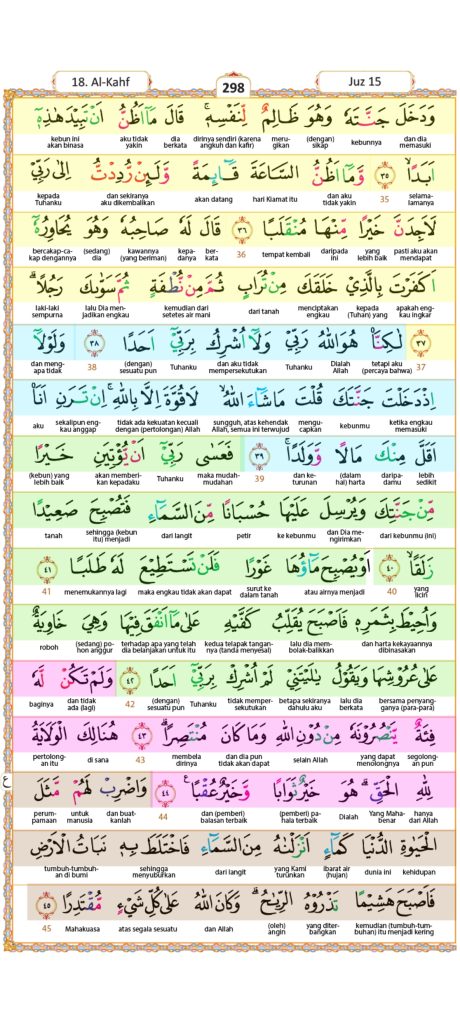 18. Al-Kahf
298
Juz 15
وَدَخَلَ جَنَّتَهٗ وَهُوَ ظَالِمٌ لِّنَفْسِهٖۚ قَالَ مَآ اَظُنُّ اَنْ تَبِيْدَ هٰذِهٖٓ
kebun ini aku tidak dia dirinya sendiri (karena meru- (dengan) kebunnya dan dia
akan binasa yakin berkata angkuh dan kafir) gikan sikap memasuki
اَبَدًاۙ ٣٥ وَّمَآ اَظُنُّ السَّاعَةَ قَاۤىِٕمَةً وَّلَىِٕنْ رُّدِدْتُّ اِلٰى رَبِّيْ
kepada dan sekiranya akan datang hari Kiamat itu dan aku 35 selama-
Tuhanku aku dikembalikan tidak yakin lamanya
لَاَجِدَنَّ خَيْرًا مِّنْهَا مُنْقَلَبًا ٣٦ قَالَ لَهٗ صَاحِبُهٗ وَهُوَ يُحَاوِرُهٗٓ
bercakap-ca- (sedang) kawannya kepa- ber- 36 tempat kembali daripada yang pasti aku akan
kap dengannya dia (yang beriman) danya kata ini lebih baik mendapat
اَكَفَرْتَ بِالَّذِيْ خَلَقَكَ مِنْ تُرَابٍ ثُمَّ مِنْ نُّطْفَةٍ ثُمَّ سَوّٰىكَ رَجُلًاۗ
laki-laki lalu Dia men- kemudian dari dari tanah menciptakan kepada apakah eng-
sempurna jadikan engkau setetes air mani engkau (Tuhan) yang kau ingkar
٣٧ لٰكِنَّا۠ هُوَ اللّٰهُ رَبِّيْ وَلَآ اُشْرِكُ بِرَبِّيْٓ اَحَدًا ٣٨ وَلَوْلَآ
dan meng- 38 (dengan) Tuhanku dan aku tidak Tuhanku Dialah tetapi aku 37
apa tidak sesuatu pun mempersekutukan Allah (percaya bahwa)
اِذْ دَخَلْتَ جَنَّتَكَ قُلْتَ مَا شَاۤءَ اللّٰهُ ۙ لَا قُوَّةَ اِلَّا بِاللّٰهِ ۚاِنْ تَرَنِ اَنَا۠
aku sekalipun eng- tidak ada kekuatan kecuali sungguh, atas kehendak mengu- kebunmu ketika engkau
kau anggap dengan (pertolongan) Allah Allah, semua ini terwujud capkan memasuki
اَقَلَّ مِنْكَ مَالًا وَّوَلَدًاۚ ٣٩ فَعَسٰى رَبِّيْٓ اَنْ يُّؤْتِيَنِ خَيْرًا
(kebun) yang akan memberi- Tuhanku maka mudah- 39 dan ke- (dalam) daripa- lebih
lebih baik kan kepadaku mudahan turunan hal) harta damu sedikit
مِّنْ جَنَّتِكَ وَيُرْسِلَ عَلَيْهَا حُسْبَانًا مِّنَ السَّمَاۤءِ فَتُصْبِحَ صَعِيْدًا
tanah sehingga (kebun dari langit petir ke kebunmu dan Dia me- dari kebunmu (ini)
itu) menjadi ngirimkan
زَلَقًاۙ ٤٠ اَوْ يُصْبِحَ مَاۤؤُهَا غَوْرًا فَلَنْ تَسْتَطِيْعَ لَهٗ طَلَبًا ٤١
41 menemukannya lagi maka engkau tidak akan dapat surut ke atau airnya menjadi 40 yang
dalam tanah licin
وَاُحِيْطَ بِثَمَرِهٖ فَاَصْبَحَ يُقَلِّبُ كَفَّيْهِ عَلٰى مَآ اَنْفَقَ فِيْهَا وَهِيَ خَاوِيَةٌ
roboh (sedang) po- terhadap apa yang telah kedua telapak tangan- lalu dia mem- dan harta kekayaannya
hon anggur dia belanjakan untuk itu nya (tanda menyesal) bolak-balikkan dibinasakan
عَلٰى عُرُوْشِهَا وَيَقُوْلُ يٰلَيْتَنِيْ لَمْ اُشْرِكْ بِرَبِّيْٓ اَحَدًا ٤٢ وَلَمْ تَكُنْ لَّهٗ
baginya dan tidak 42 (dengan) Tuhanku tidak memper- betapa sekiranya lalu dia bersama penyang-
ada (lagi) sesuatu pun sekutukan dahulu aku berkata ganya (para-para)
فِئَةٌ يَّنْصُرُوْنَهٗ مِنْ دُوْنِ اللّٰهِ وَمَا كَانَ مُنْتَصِرًاۗ ٤٣ هُنَالِكَ الْوَلَايَةُ
pertolong- di sana 43 membela dan dia pun selain Allah yang dapat segolong-
an itu dirinya tidak akan dapat menolongnya an pun
لِلّٰهِ الْحَقِّۗ هُوَ خَيْرٌ ثَوَابًا وَّخَيْرٌ عُقْبًا ࣖ ٤٤ وَاضْرِبْ لَهُمْ مَّثَلَ
ع
perum- untuk dan buat- 44 dan (pemberi) (pemberi) pa- Dialah Yang Maha- hanya
pamaan manusia kanlah balasan terbaik hala terbaik benar dari Allah
الْحَيٰوةِ الدُّنْيَا كَمَاۤءٍ اَنْزَلْنٰهُ مِنَ السَّمَاۤءِ فَاخْتَلَطَ بِهٖ نَبَاتُ الْاَرْضِ
tumbuh-tumbuh- sehingga dari langit yang Kami ibarat air dunia ini kehidupan
an di bumi menyuburkan turunkan (hujan)
فَاَصْبَحَ هَشِيْمًا تَذْرُوْهُ الرِّيٰحُ ۗوَكَانَ اللّٰهُ عَلٰى كُلِّ شَيْءٍ مُّقْتَدِرًا ٤٥
45 Mahakuasa atas segala sesuatu dan Allah (oleh) yang diter- kemudian (tumbuh-tum-
angin bangkan buhan) itu menjadi kering